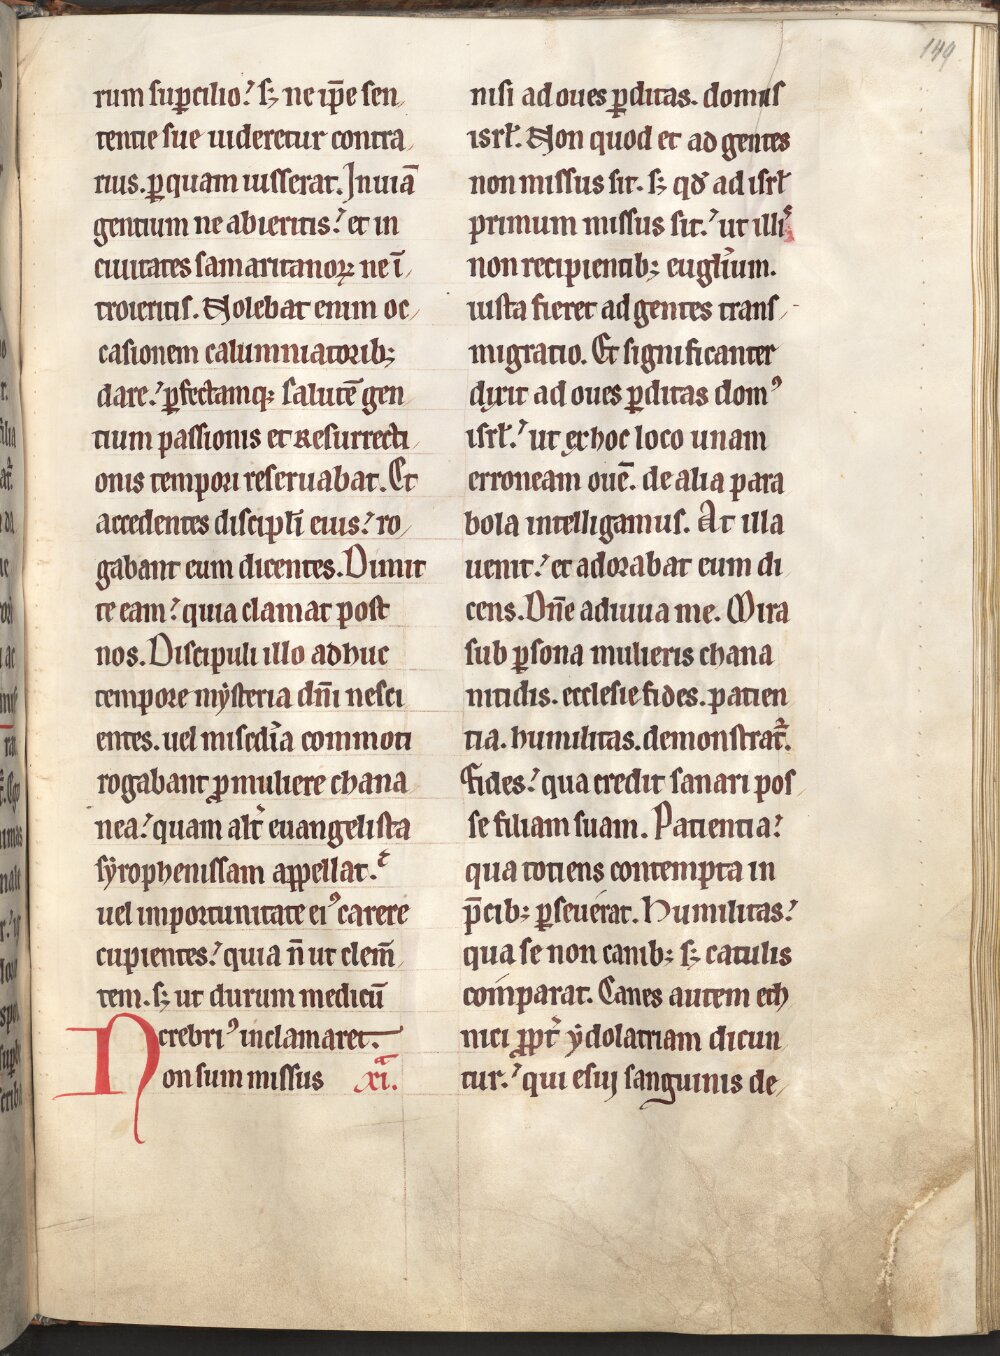 149
rum suꝑcilio? sꝫ ne ip̄e sen
tentie sue uideretur contra
rius. ꝑquam iusserat. In uiā
gentium ne abieritis? et in
ciuitates samaritanoꝝ ne ī
troieritis. Nolebat enim oc
casionem calumniatoribꝫ
dare? ꝑfectamqꝫ salutē gen
tium passionis et Resurrecti
onis tempori reseruabat. Et
accedentes discipl̄i eius? ro
gabant eum dicentes. Dimit
te eam? quia clamat post
nos. Discipuli illo adhuc
tempore mẏsteria dn̄i nesci
entes. uel misc̄dia commoti
rogabant ꝓ muliere chana
nea? quam alt̄ euangelista
sẏrophenissam appellat.
uel importunitate eiꝰ carere
cupientes? quia n̄ ut clem̄
tem. sꝫ ut durum medicū
crebriꝰ inclamaret.
Non sum missus xi.a
nisi ad oues ꝑditas. domus
isrł. Non quod et ad gentes
non missus sit. sꝫ qđ ad isrł
primum missus sit? ut illis
non recipientibꝫ eugłium.
iusta fieret ad gentes trans
migratio. Et significanter
dixit ad oues ꝑditas domꝰ
isrł? ut ex hoc loco unam
erroneam ouē. de alia para
bola intelligamus. At illa
uenit? et adorabat eum di
cens. Dn̄e adiuua me. Mira
sub ꝑsona mulieris chana
nitidis. ecclesie fides. patien
tia. humilitas. demonstrat̄.
Fides? qua credit sanari pos
se filiam suam. Patientia?
qua totiens contempta in
p̄cibꝫ ꝑseuerat. Humilitas?
qua se non canibꝫ sꝫ catulis
comparat. Canes autem eth
nici ꝓpt̄ ẏdolatriam dicun
tur? qui esui sanguinis de